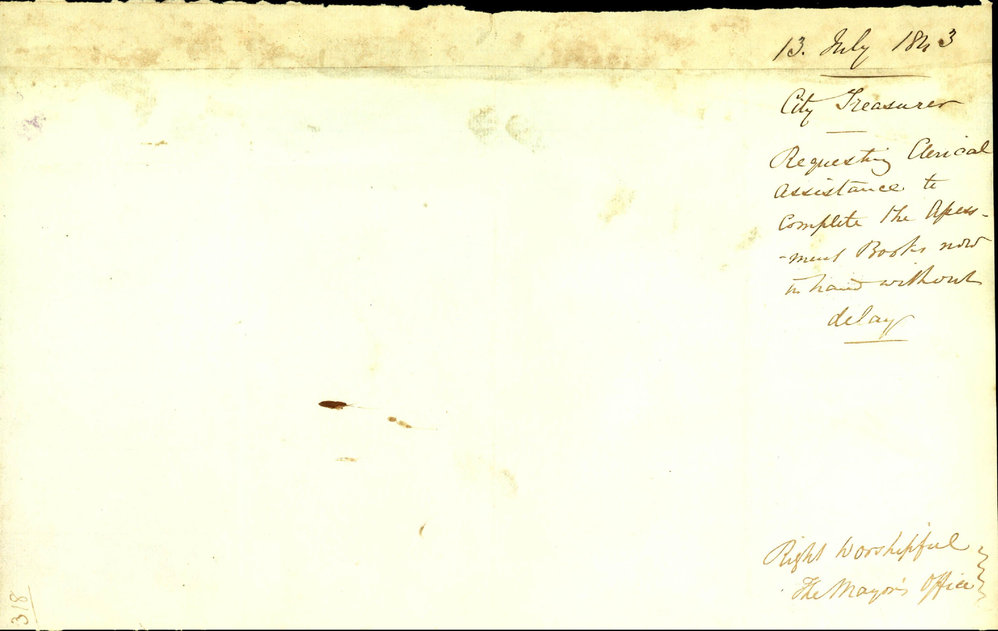 13. July 1843
City Treasurer
Requesting Clerical
Assistance to
Complete the Assess-
-ment Books now
in hand without
delay
Right Worshipful
The Mayor's Office
318